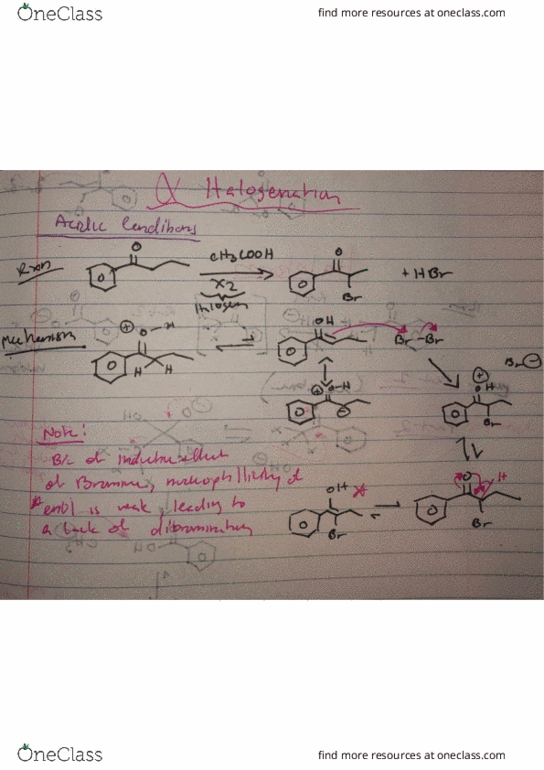 OneClass find more resources at oneclass.com
α Halogenation
Acidic Conditions
Rxn
O
CH3COOH
X2
Halogen
O
Br
+ HBr
Mechanism
⊕ O - H
H H
OH
Br - Br
Br ⊖
⊕ O-H
⊖
⊕
OH
Br
Note:
B/c of inductive effect
of Bromine, nucleophilicity of
enol is weak, leading to
a lack of dibromination
OH
Br
O
H
Br
OneClass find more resources at oneclass.com